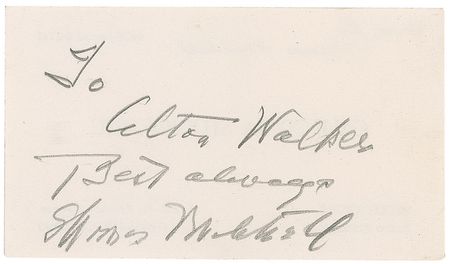 To
Alton Walker
Best always
Thomas Mitchell